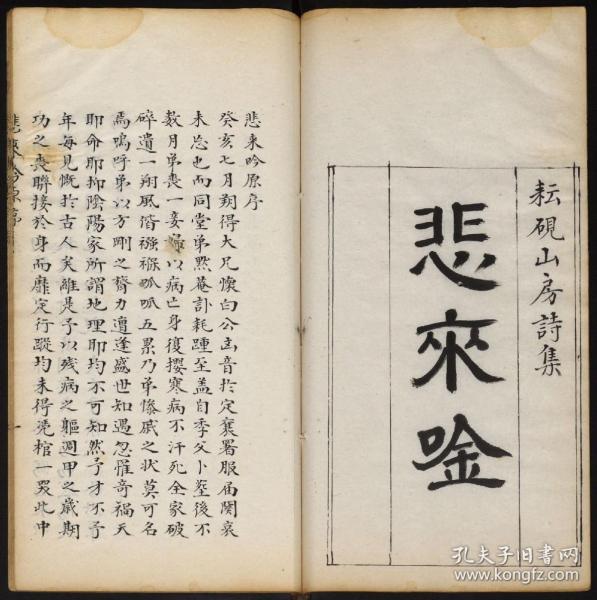 耘硯山房詩集
悲來唫
悲來吟原序
癸亥七月朔得大兄懷白公凶音於定襄署服届闋哀
未忘也而同堂弟㸃菴訃耗踵至盖自季父卜塟後不
數月弟喪一妾歸以病亡身復攖寒病不汗死全家破
碎遺一朔風偕襁褓呱呱五累乃弟慘戚之狀莫可名
焉嗚呼弟以方剛之膂力遭逢盛世知遇忽罹奇禍天
耶命耶抑隂陽家所謂地理耶均不可知然予才不予
年每見慨於古人矣離是予以殘病之軀週甲之歲期
功之喪聯接於身而靡定行蹤均未得凭棺一哭此中
悲來吟原序
孔夫子旧书网
www.kongfz.com